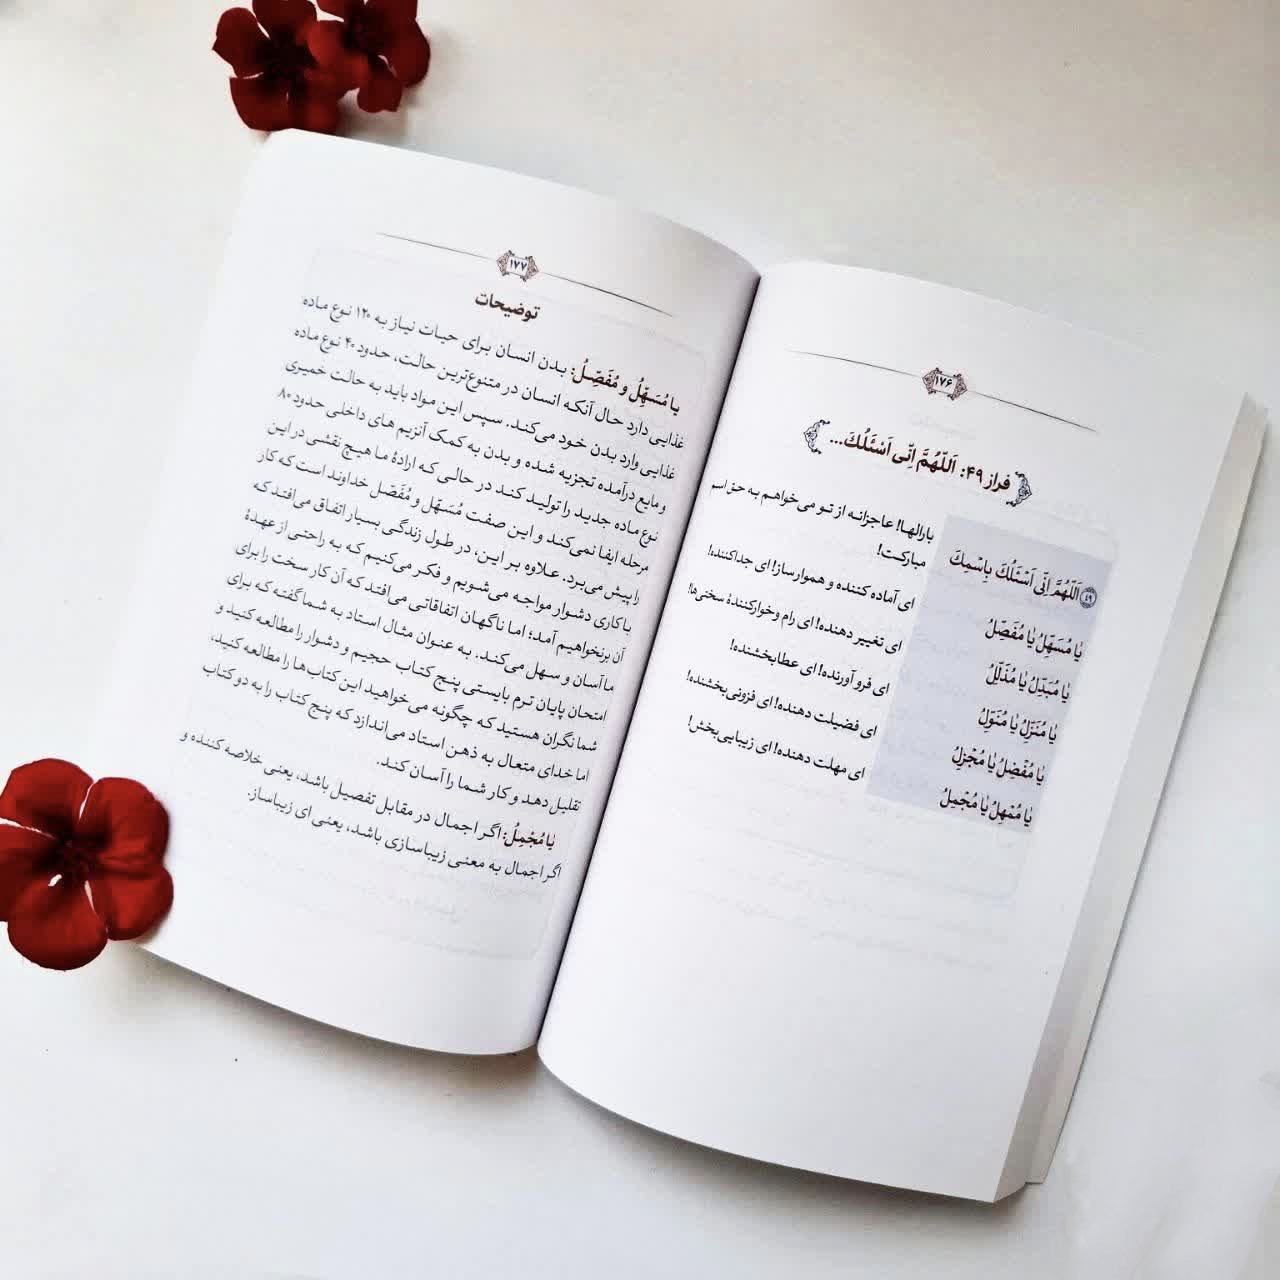 ۱۷۶
فراز ۴۹: اَللّهُمَّ اِنّی اَسْئَلُکَ...
۴۹ اَللّهُمَّ اِنّی اَسْئَلُکَ بِاسْمِکَ
یا مُسَهِّلُ یا مُفَصِّلُ
یا مُبَدِّلُ یا مُذَلِّلُ
یا مُنَزِّلُ یا مُنَوِّلُ
یا مُفْضِلُ یا مُجْزِلُ
یا مُمْهِلُ یا مُجْمِلُ
بارالها! عاجزانه از تو می‌خواهم به حق اسم
مبارکت!
ای آماده کننده و هموارساز! ای جداکننده!
ای تغییر دهنده! ای رام وخوارکنندهٔ سختی‌ها!
ای فرو آورنده! ای عطابخشنده!
ای فضیلت دهنده! ای فزونی‌بخشنده!
ای مهلت دهنده! ای زیبایی‌بخش!
۱۷۷
توضیحات
یا مُسَهِّلُ و مُفَصِّلُ: بدن انسان برای حیات نیاز به ۱۲۰ نوع ماده
غذایی دارد حال آنکه انسان در متنوع‌ترین حالت، حدود ۴۰ نوع ماده
غذایی وارد بدن خود می‌کند. سپس این مواد باید به حالت خمیری
و مایع درآمده تجزیه شده و بدن به کمک آنزیم های داخلی حدود ۸۰
نوع ماده جدید را تولید کند در حالی که ارادهٔ ما هیچ نقشی در این
مرحله ایفا نمی‌کند و این صفت مُسَهّل و مُفَصّل خداوند است که کار
را پیش می‌برد. علاوه بر این، در طول زندگی بسیار اتفاق می‌افتد که
با کاری دشوار مواجه می‌شویم و فکر می‌کنیم که به راحتی از عهدهٔ
آن برنخواهیم آمد؛ اما ناگهان اتفاقاتی می‌افتد که آن کار سخت را برای
ما آسان و سهل می‌کند. به عنوان مثال استاد به شما گفته که برای
امتحان پایان ترم بایستی پنج کتاب حجیم و دشوار را مطالعه کنید و
شما نگران هستید که چگونه می‌خواهید این کتاب‌ها را مطالعه کنید.
اما خدای متعال به ذهن استاد می‌اندازد که پنج کتاب را به دو کتاب
تقلیل دهد و کار شما را آسان کند.
یا مُجْمِلُ: اگر اجمال در مقابل تفصیل باشد، یعنی خلاصه کننده و
اگر اجمال به معنی زیباسازی باشد، یعنی ای زیباساز.